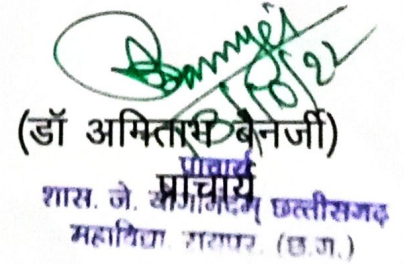 /10/22
(डॉ अमिताभ बेनर्जी)
प्राचार्य
प्राचार्य
शास. जे. योगानंदम् छत्तीसगढ़
महाविद्या. रायपुर. (छ.ग.)